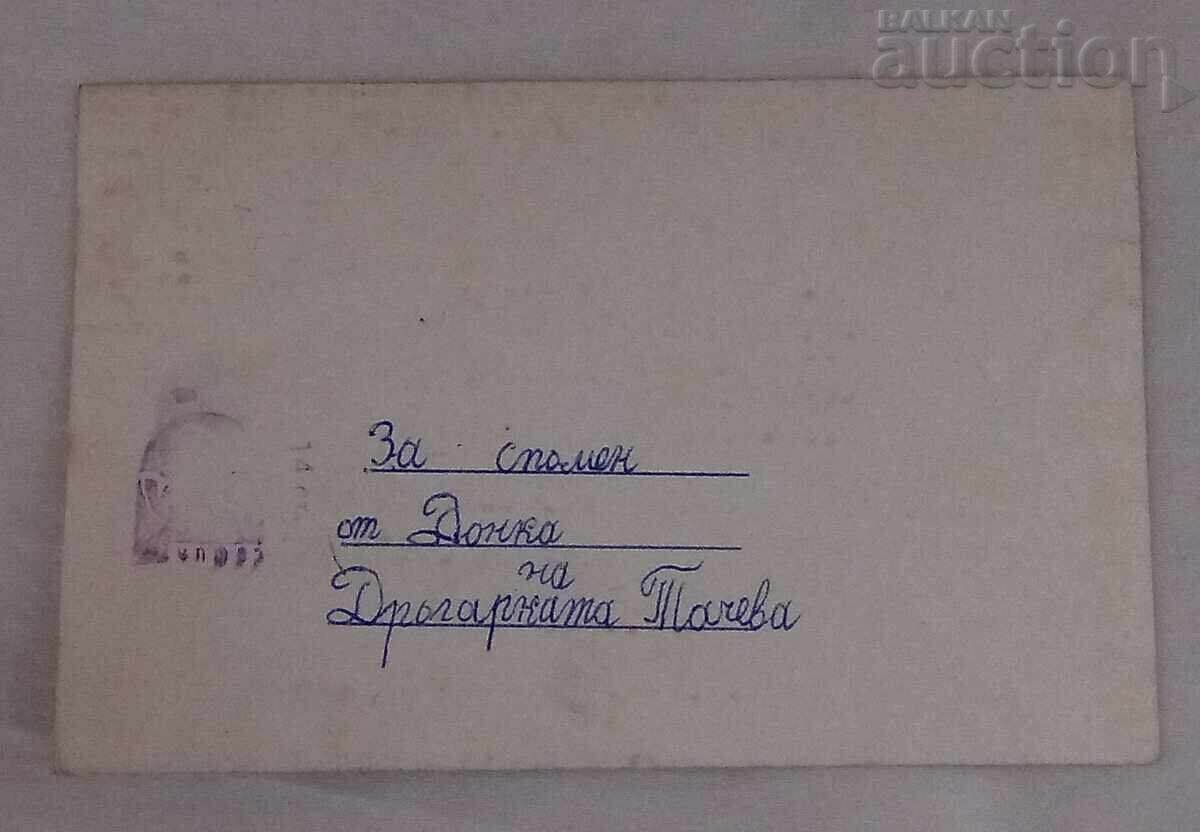 BALKAN
auction
За спомен
от Донка
на
Другарката Тачева